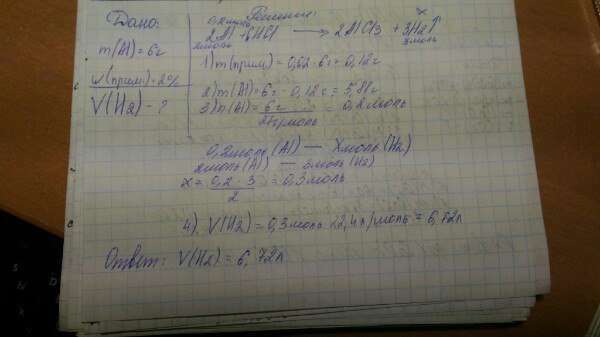 Дано:
m(Al)=6г
w(прим)=2%
V(H2) - ?
Решение:
0,2моль x
2Al+6HCl → 2AlCl3 + 3H2↑
2моль 3моль
1) m(прим) = 0,02·6г = 0,12г
2) m(Al) = 6г - 0,12г = 5,88г
3) n(Al) = 6г = 0,2моль
27г/моль
0,2моль (Al) — Xмоль (H2)
2моль (Al) — 3моль (H2)
x = 0,2 · 3 = 0,3моль
2
4) V(H2) = 0,3моль · 22,4л/моль = 6,72л
Ответ: V(H2) = 6,72л